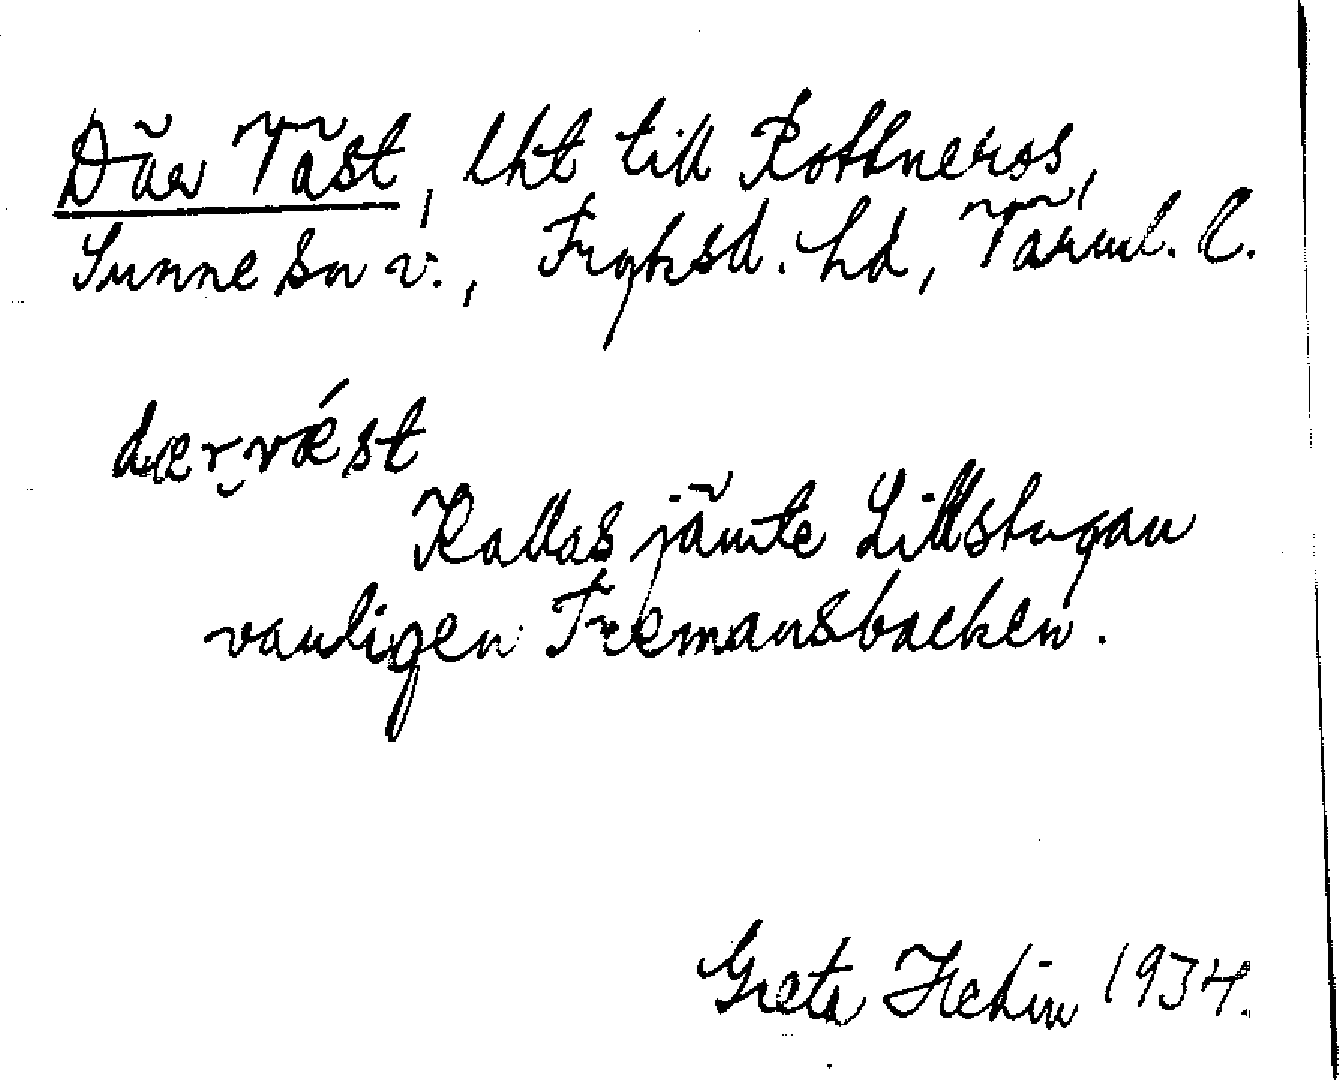 Där Väst, lht till Rottneros,
Sunne sn v., Fryksd. hd, Värml. l.
dær‿vǽst
Kallas jämte Lillstugan
vanligen Fremansbacken.
Greta Hedin 1934.